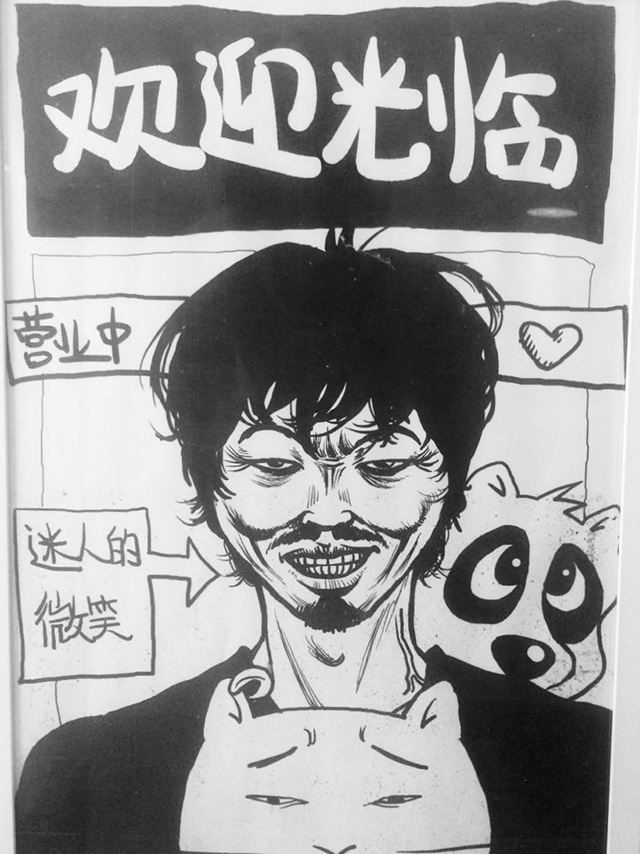 欢迎光临
营业中
迷人的
微笑